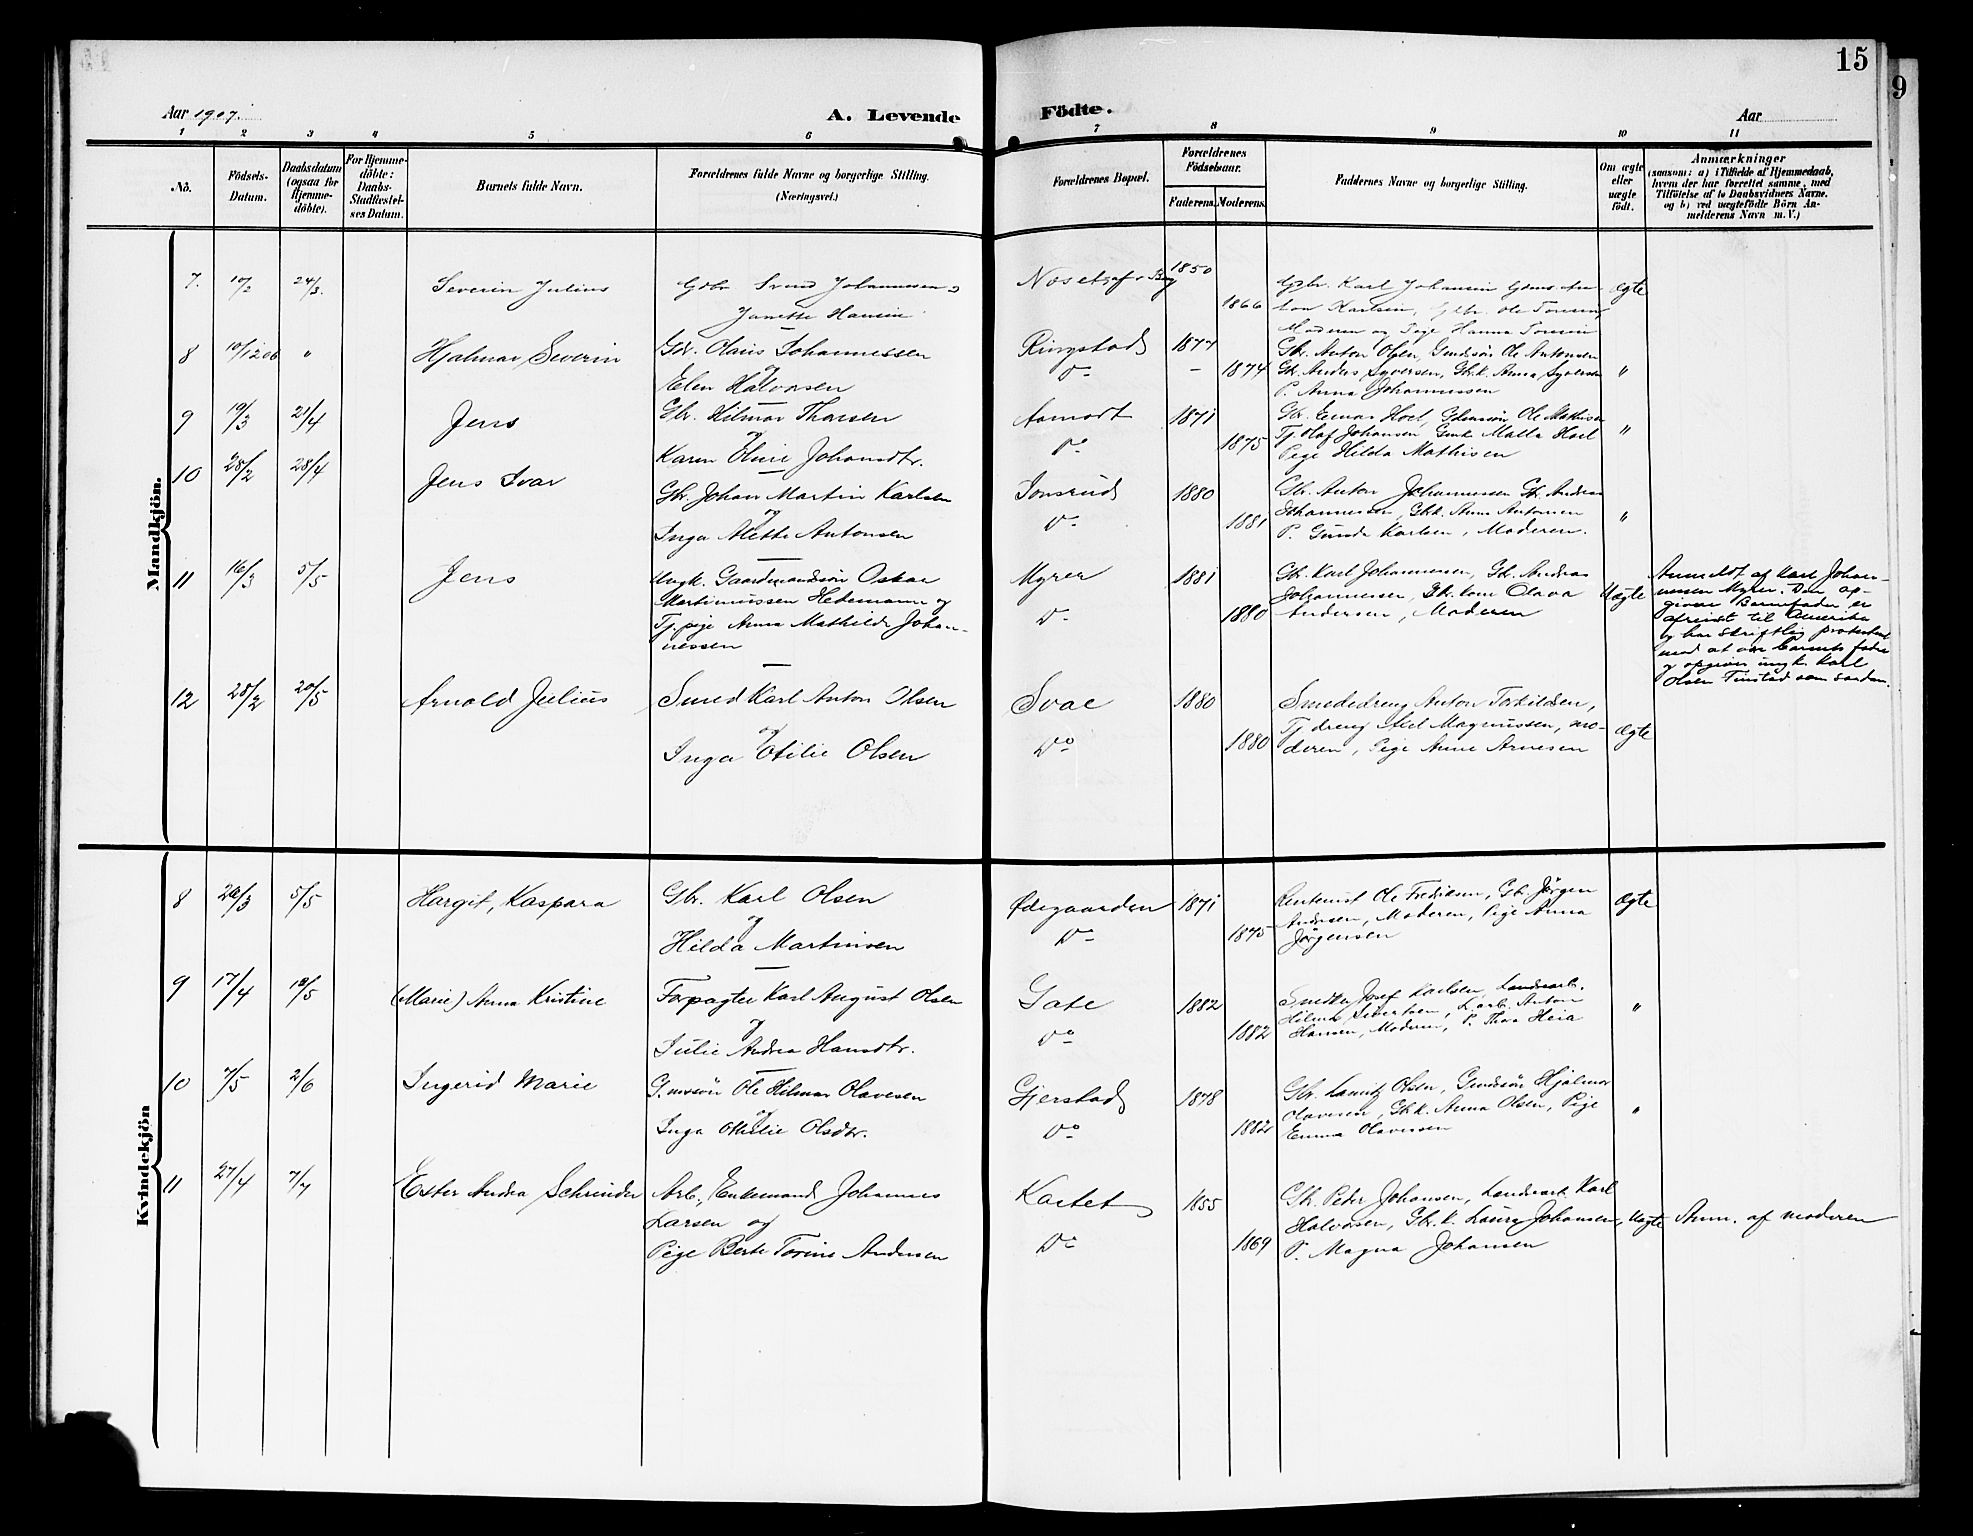 15
9
Aar 1907.
A. Levende Födte.
Aar
1 2 3 4 5 6 7 8 9 10 11
No.
Födsels-
Datum.
Daabsdatum
(ogsaa for
Hjemme-
döbte).
For Hjemme-
döbte:
Daabs-
Stadfæstel-
ses Datum.
Barnets fulde Navn.
Forældrenes fulde Navne og borgerlige Stilling.
(Næringsvei.)
Forældrenes Bopæl.
Forældrenes
Födselsaar.
Faderens. Moderens.
Faddernes Navne og borgerlige Stilling.
Om ægte
eller
uægte
födt.
Anmærkninger
(saasom: a) i Tilfælde af Hjemmedaab,
hvem der har forrettet samme, med
Tilföielse af to Daabsvidners Navne.
og b) ved uægtefödte Börn An-
melderens Navn m. V.)
Mandkjön.
7. 10/2 24/3. Severin Julius
Johannesen
Janette Hansen
1850
1866
Gbr. Karl Johansen
Karlsen, Ole
Moderen og Pige Hanna
ægte
8 10/12 06 " Hjalmar Severin
Gbr. Olaus Johannessen
og
Elen Halvorsen
Ringstad 1877
Do - 1874
Gbr. Anton Olsen, Gmdssön Ole Antonsen
Gbr. Anders Syversen, Gbr.k. Anna Syversen
P. Anna Johannessen
"
9 19/3 21/4 Jens
Gbr. Hilmar Thorsen
og
Karen Oline Johansdtr.
Aamodt 1871
Do 1875
Gbr. Einar Hoel, Ole Mathisen
Tj. Olaf Johansen Hoel
Pige Hilda Mathisen
"
10 28/2 28/4 Jens Ivar
Gbr. Johan Martin Karlsen
og
Inga Alette Antonsen
Jonsrud 1880
Do 1881
Gbr. Anton Johannessen Gb. Andreas
Johannessen, Gbk. Anne Antonsen
P. Gunda Karlsen, Moderen.
"
11 16/3 5/5 Jens
Ungk. Gaardmandssön Oskar
Martinussen Hedemann og
Tj.pige Anna Mathilde Johan-
nessen
Myrer 1881
Do 1880
Gbr. Karl Johannessen, Gb. Andreas
Johannessen, Gbr. kone Olava
Andersen, Moderen
Uægte
Anmeldt af Karl Johan-
nessen Myrer. Den op-
givne Barnefader er
afreist til Amerika
og har skriftlig protestert
mod at være barnets fader
og opgiver ungk. Karl
Olsen som saadan.
12 28/2 20/5 Arnold Julius
Smed Karl Anton Olsen
og
Inga Otilie Olsen
Svae 1880
Do 1880
Smededreng Anton Torkildsen,
Tj dreng Magnussen, mo-
deren, Pige Anne Arnesen
ægte
Kvindekjön
8 20/3 5/5 Hargit, Kaspara
Gbr. Karl Olsen
og
Hilda Martinsen
Ödegaarden 1871
Do 1875
Rentenist Ole Fredriksen, Gb. Jörgen
Andersen, Moderen, Pige Anna
Jörgensen
ægte
9 17/4 18/5 (Marie) Anna Kristine
Forpagter Karl August Olsen
og
Julie Andrea Hansdtr.
Gate 1882
Do 1882
Josef Karlsen, Landvarb.
Sivertsen, L.arb. Anton
Hansen, Moderen, P. Thora Heia
"
10 7/5 2/6 Ingerid Marie
G.mssön Ole Hilmar Olavesen
og
Inga Otilie Olsdtr.
Gjerstad 1878
Do 1882
Gbr. Lauritz Olsen, Gmdssön Hjalmar
Olavesen, Gb.k. Anna Olsen, Pige
Emma Olavesen
"
11 27/4 7/7 Ester Andrea
Arb., Enkemand Johannes
Larsen og
Pige Berte Torine Andersen
1855
Do 1869
Gbr. Peder Johansen, Landvarb. Karl
Halvorsen, Gbr.k. Laura Johansen,
P. Magna Johansen
Uægte
Anm. af moderen